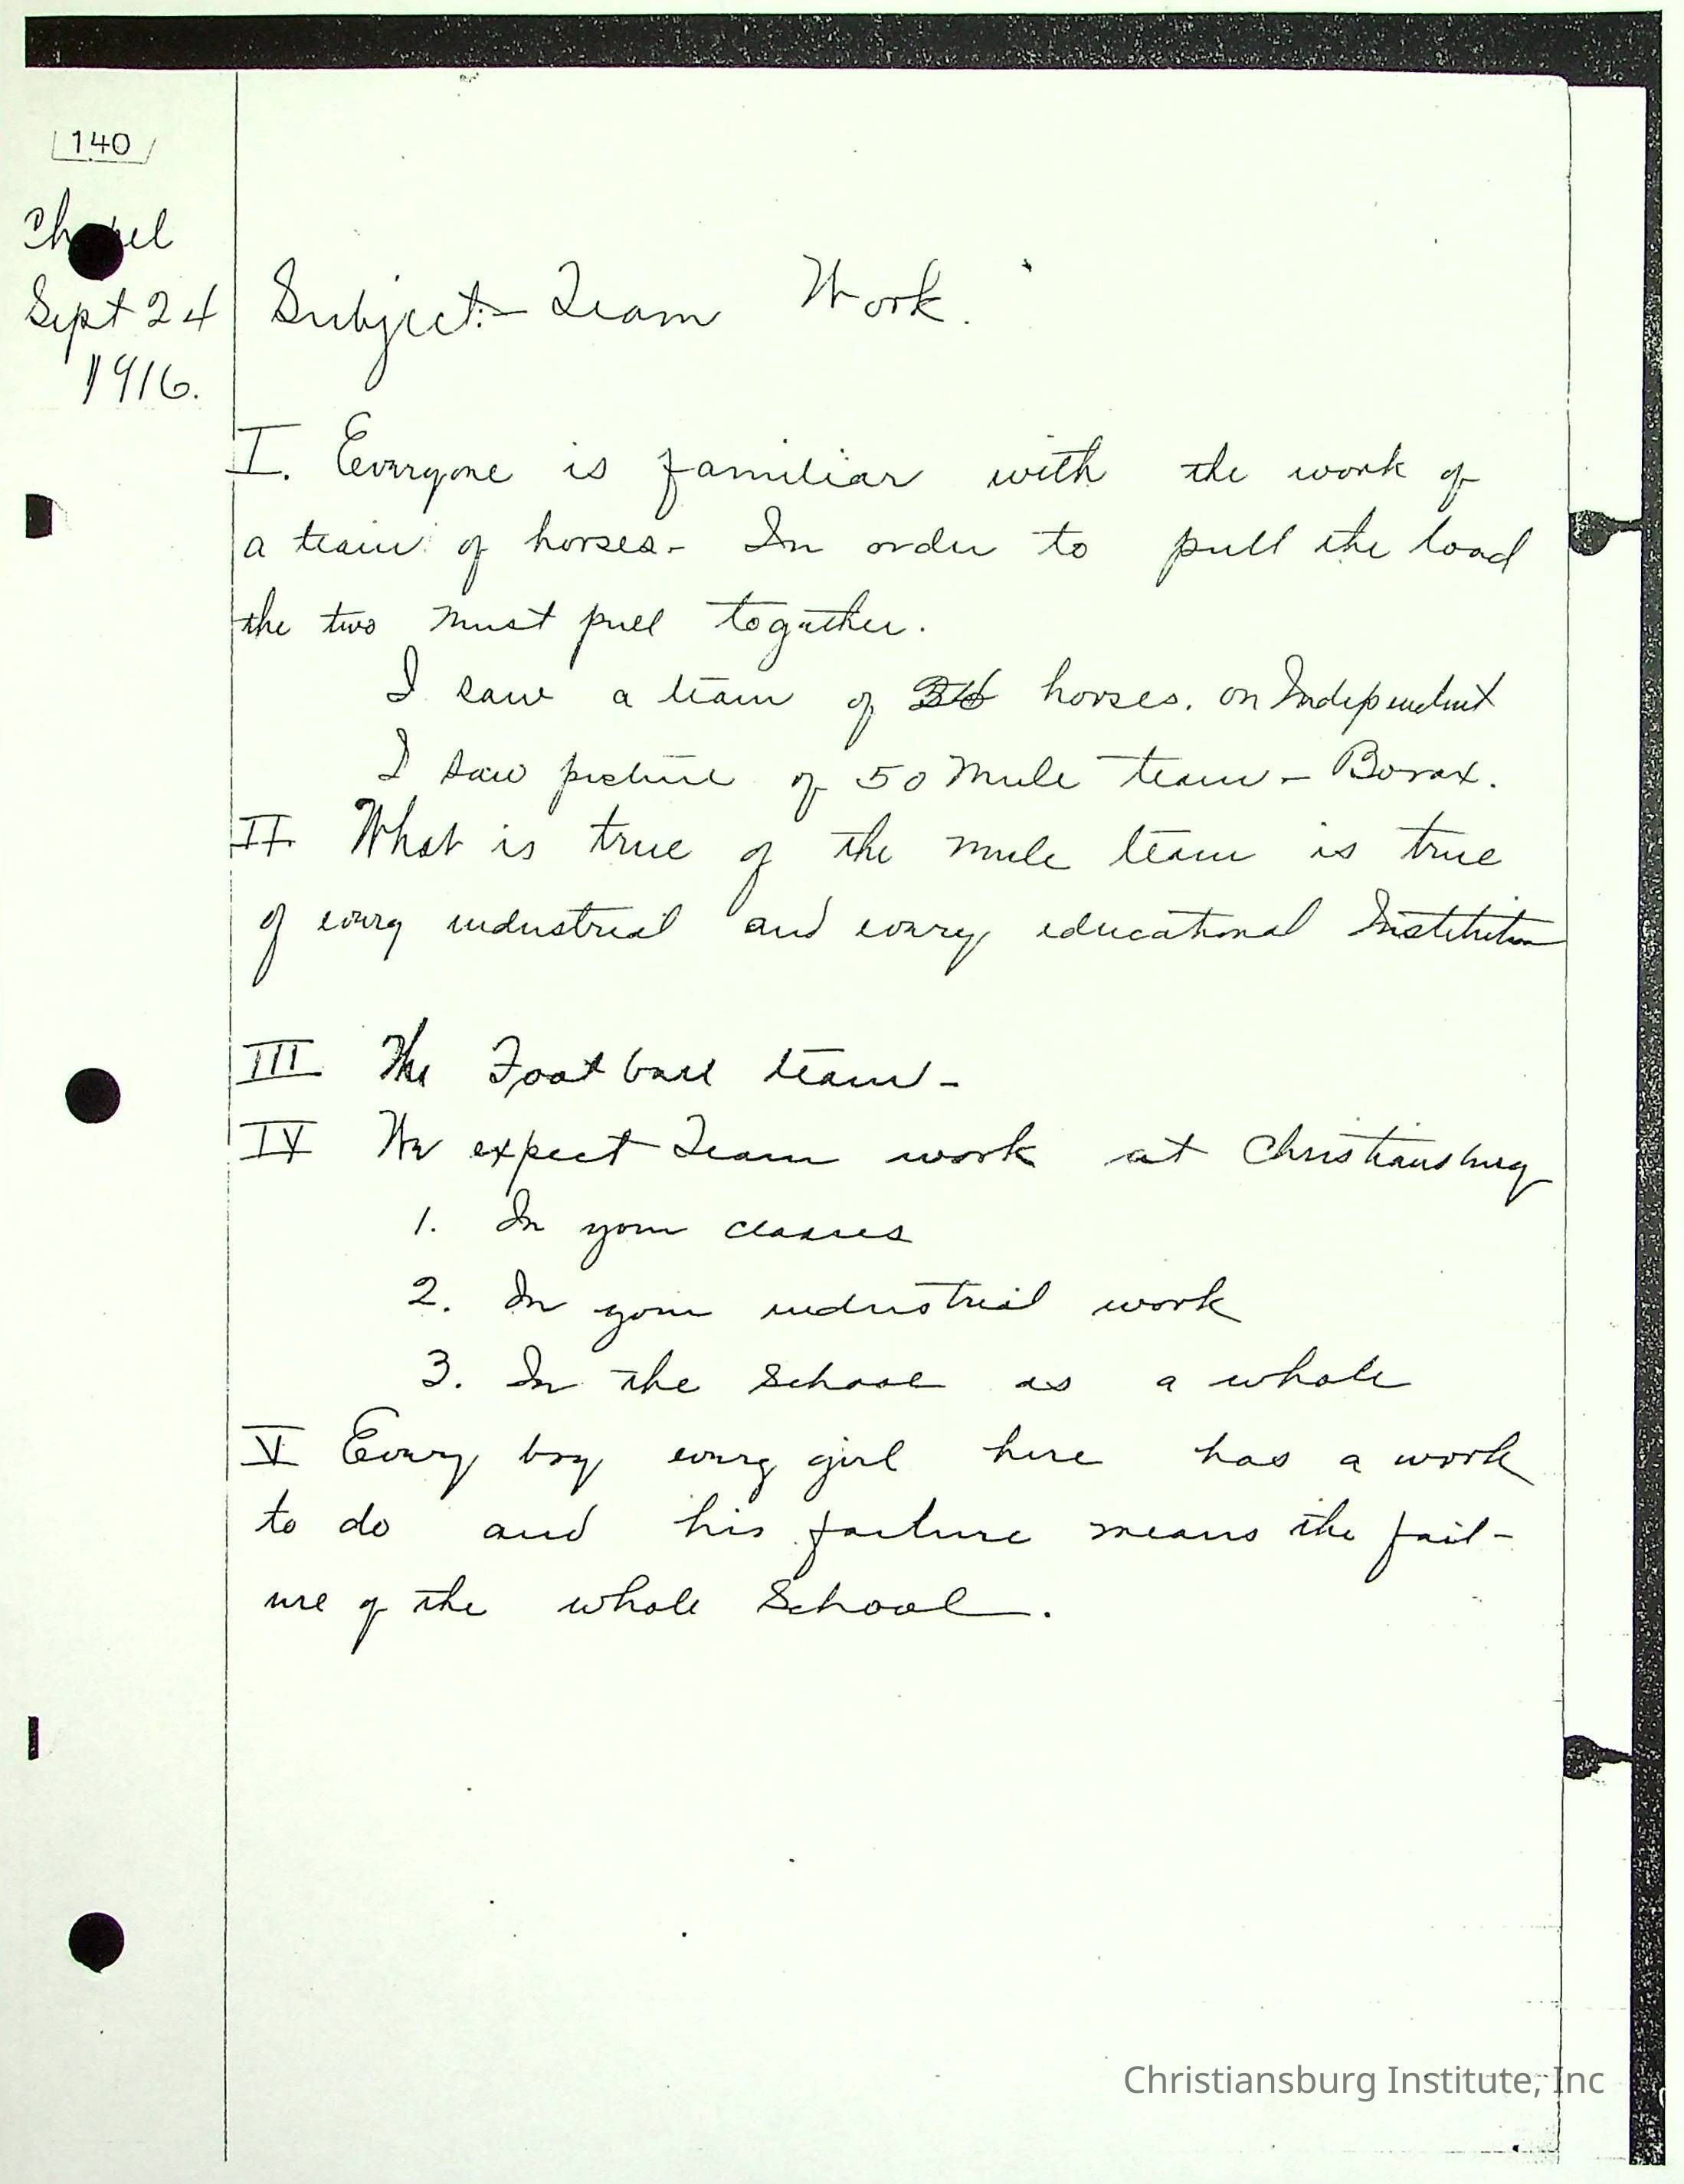 140
Chapel
Sept 24
1916.
Subject:- Team Work.
I. Everyone is familiar with the work of
a team of horses- In order to pull the load
the two must pull together.
I saw a team of 36 horses. on Independent
I saw picture of 50 Mule team - Borax.
II. What is true of the mule team is true
of every industrial and every educational Institution
III The Foot ball team -
IV We expect Team work at Christiansburg
1. In your classes
2. In your industrial work
3. In the School as a whole
V Every boy every girl here has a work
to do and his failure means the fail-
ure of the whole School.
Christiansburg Institute, Inc